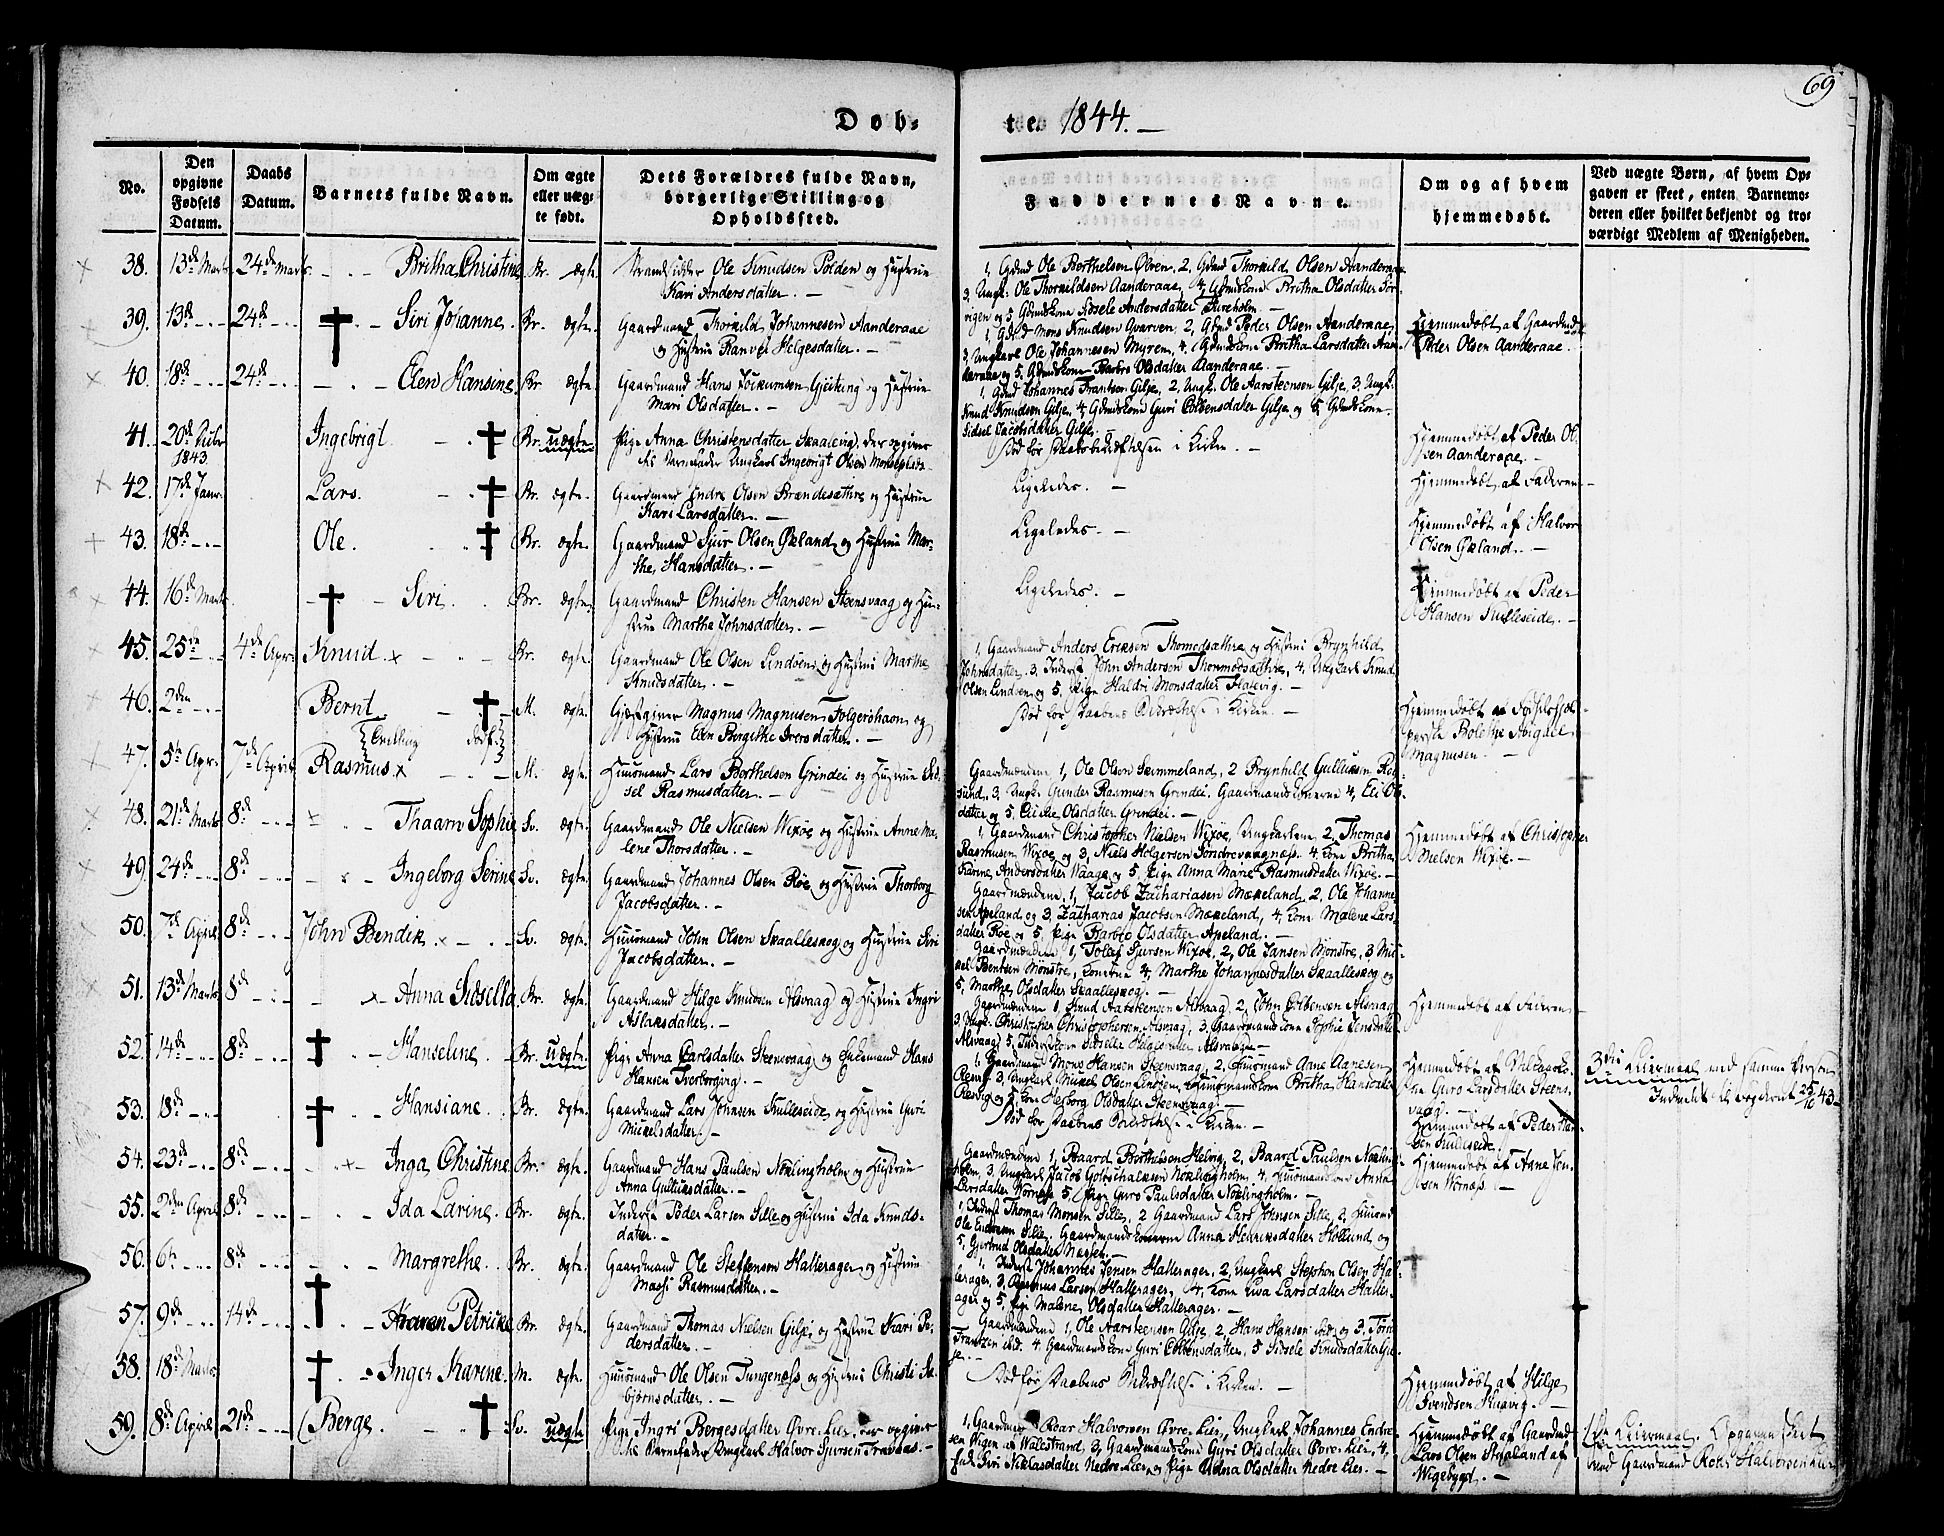 69
Døb-
te. 1844. —
No.
Den opgivne Fødsels Datum.
Daabs Datum.
Barnets fulde Navn.
Om ægte eller uægte født.
Dets Forældres fulde Navn, borgerlige Stilling og Opholdssted.
Faddernes Navne.
Om og af hvem hjemmedøbt.
Ved uægte Børn, af hvem Opgaven er skeet, enten Barnemoderen eller hvilket bekjendt og troværdigt Medlem af Menigheden.
38. 13de Marts 24de Marts Britha Christine Br. ægte. Strandsidder Ole Knudsen Polden og Hustrue
Kari Andersdatter. —
1, Gdmd Ole Berthelsen Øvren, 2, Gdmd Thorkild Olsen Aanderaae
3, Ungk: Ole Thorkildsen Aanderaae, 4, Gdmdskone Britha Olsdatter
og 5 Gdmdskone Sidsele Andersdatter
39. 13de 24de Siri Johanne. Br. ægte. Gaardmand Thorkild Johannesen Aanderaae
og Hustrue Ranvei Helgesdatter. —
1, Gdmd Mons Knudsen Qvarven, 2, Gdmd Peder Olsen Aanderaae,
3, Ungkarl Ole Johannesen Myrem, 4, Gdmdskone Britha Larsdatter Aanderaae
og 5, Gdmdskone Barbro Olsdatter Aanderaae. —
Hjemmedøbt af Gaardmd
Peder Olsen Aanderaae.
40. 18de 24de Elen Hansine. Br. ægte. Gaardmand Hans Jockumsen og Hustrue
Mari Olsdatter. —
1, Gdmd Johannes Frantsen Gilje, 2, Ungk. Ole Aarsteensen Gilje, 3, Ungk.
Knud Knudsen Gilje, 4, Gdmdskone Guri Colbensdatter Gilje og 5, Gdmdskone
Sidsel Jacobsdatter Gilje.
41. 20de 1843. Ingebrigt. Br. uægte. Pige Anna Christensdatter Skaalevig, der opgiver
til Barnefader Ungkarl Ingebrigt Olsen
Død før Daabsbekræftelsen i Kirken. —
Hjemmedøbt af Peder Olsen Aanderaae. —
42. 17de Janr. Lars. Br. ægte. Gaardmand Endre Olsen Brandesæthre og Hustrue
Kari Larsdatter. —
Ligeledes. —
Hjemmedøbt af Faderen. —
43. 18de Ole. Br. ægte. Gaardmand Sjur Olsen Økland og Hustrue Marthe Hansdatter. —
Ligeledes. —
Hjemmedøbt af Halvor
Olsen Økland. —
44. 16de Marts Siri. Br. ægte. Gaardmand Christen Hansen Steensvaag og Hustrue Martha Johnsdatter. —
Ligeledes. —
Hjemmedøbt af Peder
Hansen Kulleseide. —
45. 25de 4de Apr. Knud Br. ægte. Gaardmand Ole Olsen Lindøen og Hustrue Marthe
Knudsdatter. —
1, Gaardmand Anders Ericksen Thormodsæthre og Hustrue Brynhild
Johnsdatter. 3, Inderst John Andersen Thormodsæthre, 4, Ungkarl Knud
Olsen Lindøen og 5, Pige Haldri Monsdatter —
46. 2den Bernt M. ægte. Gjæstgiver Magnus Magnusen Folgerøhavn og
Hustrue Elen Birgithe Iversdatter. —
Død før Daabens Bekræftelse i Kirken. —
Hjemmedøbt af Bolethe Abigael
Magnusen. —
47. 5te Apr. 7de April Rasmus Tvilling M. ægte. Huusmand Lars Berthelsen Grindei og Hustrue Sidsel Rasmusdatter. —
Gaardmændene 1, Ole Olsen Skimmeland, 2 Brynhild Gulliksen
3, Ungk. Gunder Rasmusen Grindei. Gaardmandskonerne 4, Eli Olsdatter og 5, Olsdatter Grindei. —
48. 21de Marts 8de Thaarn Sophie Sv. ægte. Gaardmand Ole Nielsen Wixøe og Hustrue Anne Malene Thorsdatter. —
1, Gaardmand Christopher Nielsen Wixøe, Ungkarlene 2, Thomas
Rasmusen Wixøe og 3, Niels Holgersen Søndrevaagnæss. 4. Kone Britha
Karine Andersdatter Vaage og 5, Pige Anna Marie Rasmusdatter Wixøe. —
Hjemmedøbt af Christopher
Nielsen Wixøe. —
49. 24de 8de Ingeborg Serine Sv. ægte. Gaardmand Johannes Olsen Røe og Hustrue Thorborg
Jacobsdatter. —
Gaardmændene, 1, Jacob Zachariasen Mækeland, 2, Ole Johannesen Apeland og 3, Zacharias Jacobsen Mækeland, 4, Kone Malene Larsdatter Røe og 5, Pige Barbro Olsdatter Apeland. —
50. 7de April 8de John Bendik. Sv. ægte. Huusmand John Olsen Skaalleskog og Hustrue Siri
Jacobsdatter. —
Gaardmændene 1, Tollef Sjursen Wixøe, 2, Ole Jansen Mønstre, 3
Bentsen Mønstre, Konerne 4, Marthe Johannesdatter Skaalleskog og
5, Marthe Olsdatter Skaalleskog. —
51. 13de Marts 8de Anna Sidsella Br. ægte. Gaardmand Helge Knudsen Alsvaag og Hustrue Ingri
Aslaksdatter. —
Gaardmændene 1, Knud Aarsteensen Alsvaag, 2, John Colbensen Alsvaag
3, Ungk. Christopher Christophersen Alsvaag, 3, Gaardmandskone Sophie Jensdatter
Alsvaag 5, Sidselle Helgesdatter Alsvaag. —
Hjemmedøbt af Faderen
52. 14de 8de Hanseline. Br. uægte. Pige Anna Carlsdatter Steensvaag og Enkemand Hans
Hansen Tvorborgvig. —
1, Gaardmand Mons Hansen Steensvaag, 2, Huusmand Arne Arnesen
3, Ungkarl Mikkel Olsen Lindøen, Huusmandskone Britha Hansdatter
og 5, Kone Herborg Olsdatter Steensvaag. —
Hjemmedøbt af
Guro Larsdatter Steensvaag. —
3die Leiermaal med samme Person
Indmeldt til Fogderiet 25/10 43.
53. 18de Hansiane. Br. ægte. Gaardmand Lars Johnsen Kulleseide og Hustrue Guri
Mikelsdatter. —
Død før Daabens Bekræftelse i Kirken. —
Hjemmedøbt af Peder Hansen Kulleseide.
54. 23de 8de Inga Christine Br. ægte. Gaardmand Hans Paulsen Nøklingholm og Hustrue
Anna Gulliksdatter. —
Gaardmændene 1, Baard Berthelsen Helvig, 2, Baard Paulsen Nøklingholm 3, Ungkarl Jacob Gotschalksen Nøklingholm. 4, Huusmandkone Anna
Larsdatter Vornæss 5, Pige Guro Paulsdatter Nøklingholm. —
Hjemmedøbt af Anne
Vornæss. —
55. 2den April 8de Ida Larine. Br. ægte. Inderst Peder Larsen Sille og Hustrue Ida Knudsdatter. —
1, Inderst Thomas Monsen Sille, 2 Gaardmand Lars Johnsen Sille, 3, Huusmd
Ole Sille, Gaardmandskonerne Anna Henriksdatter Hollund og
5, Gjertrud Olsdatter —
56. 6te 8de Margrethe. Br. ægte. Gaardmand Ole Steffensen Hallerager og Hustrue
Masji Rasmusdatter. —
1, Inderst Johannes Jensen Hallerager, 2, Ungkarl Stephen Olsen Hallerager, 3, Rasmus Larsen Hallerager, 4, Kone Larsdatter Hallerager og 5, Pige Malene Olsdatter Hallerager. —
57. 9de 14de Karen Petricke Br. ægte. Gaardmand Thomas Nielsen Gilje og Hustrue Kari Pedersdatter. —
Gaardmændene 1, Ole Aarsteensen Gilje, 2, Hans Hansen ibd. og 3,
Frantzen ibid. 4, Gaardmandskone Guri Colbensdatter, 5 Sidsele Knudsdatter Gilje. —
58. 18de Marts Inger Karine. M. ægte. Huusmand Ole Olsen Tungenæss og Hustrue Christi
—
Død før Daabens Bekræftelse i Kirken. —
Hjemmedøbt af Helge
Svendsen —
59. 8de April 21de Berge. Sv. uægte. Pige Ingri Bergesdatter Øvre-Lier, der opgiver
til Barnefader Ungkarl Halvor Sjursen —
1, Gaardmand Roar Halvorsen Øvre-Lier, Ungkarl Johannes Endresen Vigen af Wallestrand, 3, Gaardmandskone Guri Olsdatter Øvre-Lier, 4,
Siri Niklasdatter Nedre-Lier, og Pige Udna Olsdatter Nedre-Lier. —
Hjemmedøbt af Gaardmd
Lars Olsen af
Wigebygd. —
1ste Leiermaal. Opgaven skeet
ved Gaardmand Roar Halvorsen Lier